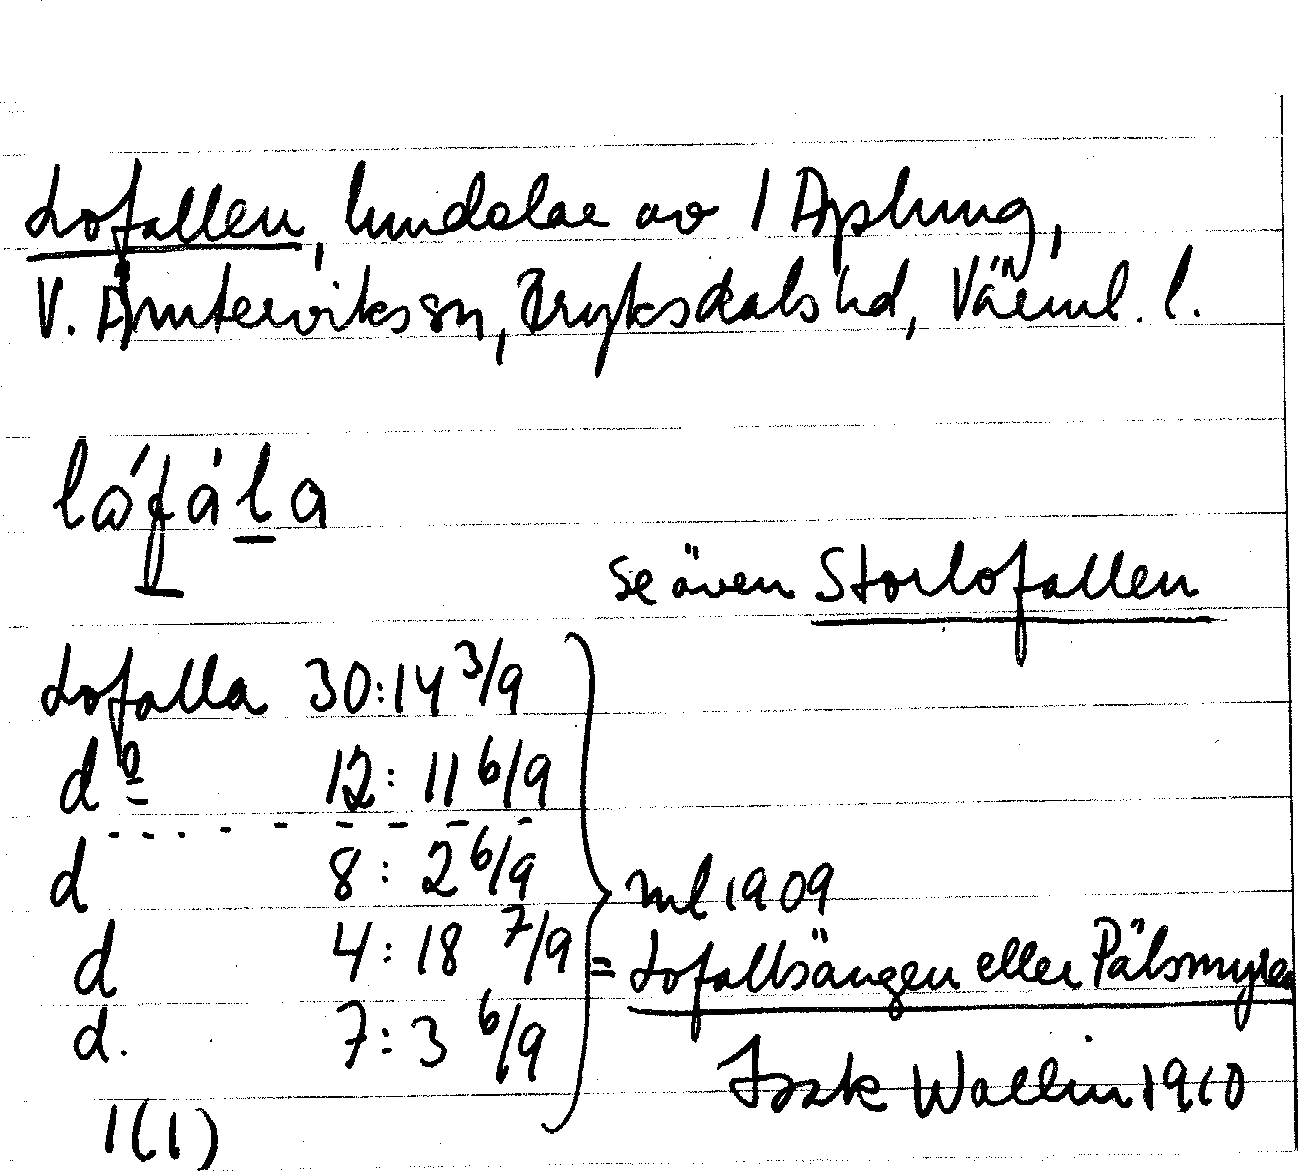 Lofallen, lundelar av 1 Aplung,
V. Ämterviks sn, Fryksdals hd, Värml. l.
lófála
se även Storlofallen
Lofalla 30:14 3/9
do 12: 11 6/9
d 8: 2 6/9
d 4:18 7/9
d. 7:3 6/9
ml 1909
= Lofallsängen eller Pålsmyren
Isak Wallin 1910
1(1)